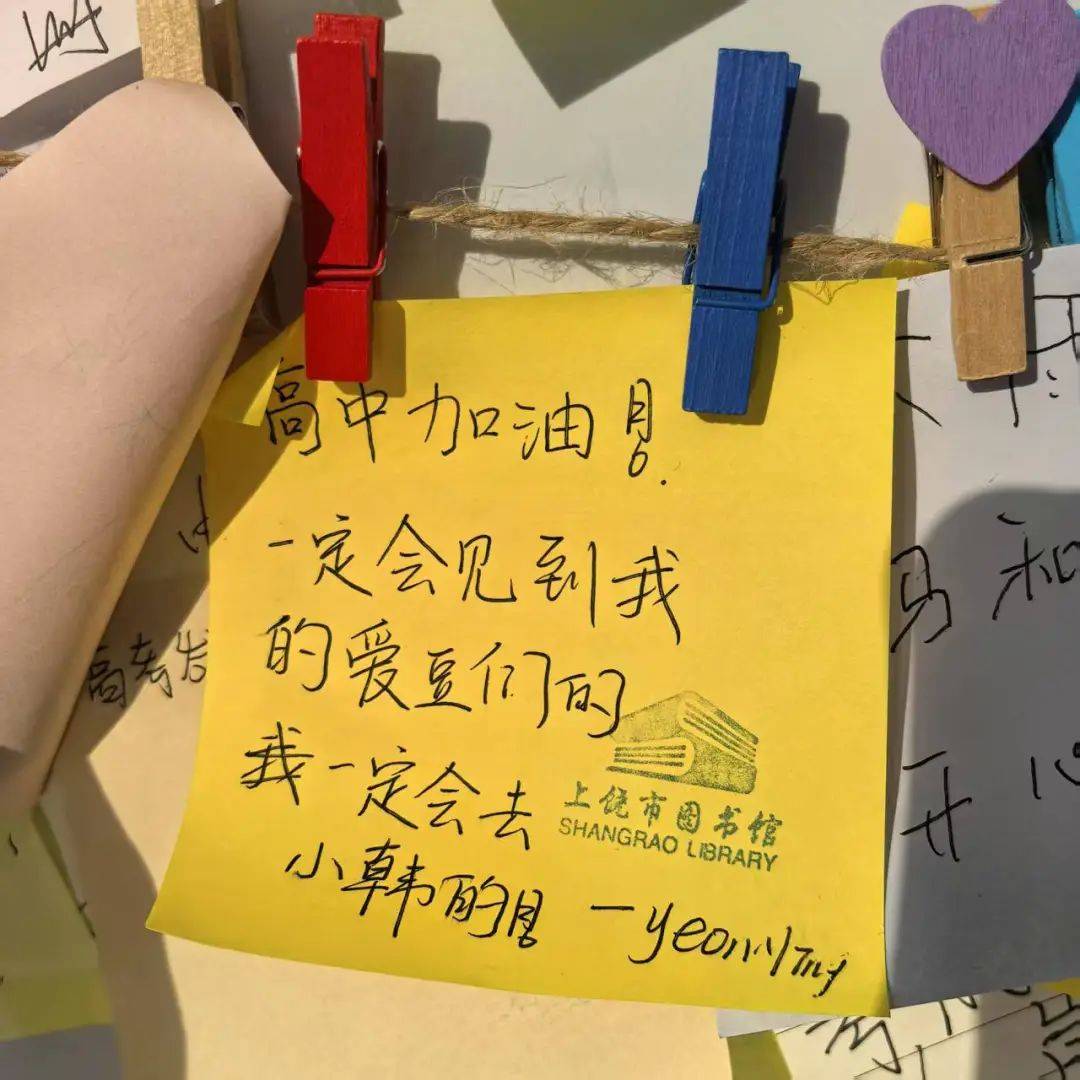 高中加油!
一定会见到我
的爱豆们的
我一定会去
小韩的!
上饶市图书馆
SHANGRAO LIBRARY
高考发
和
开心